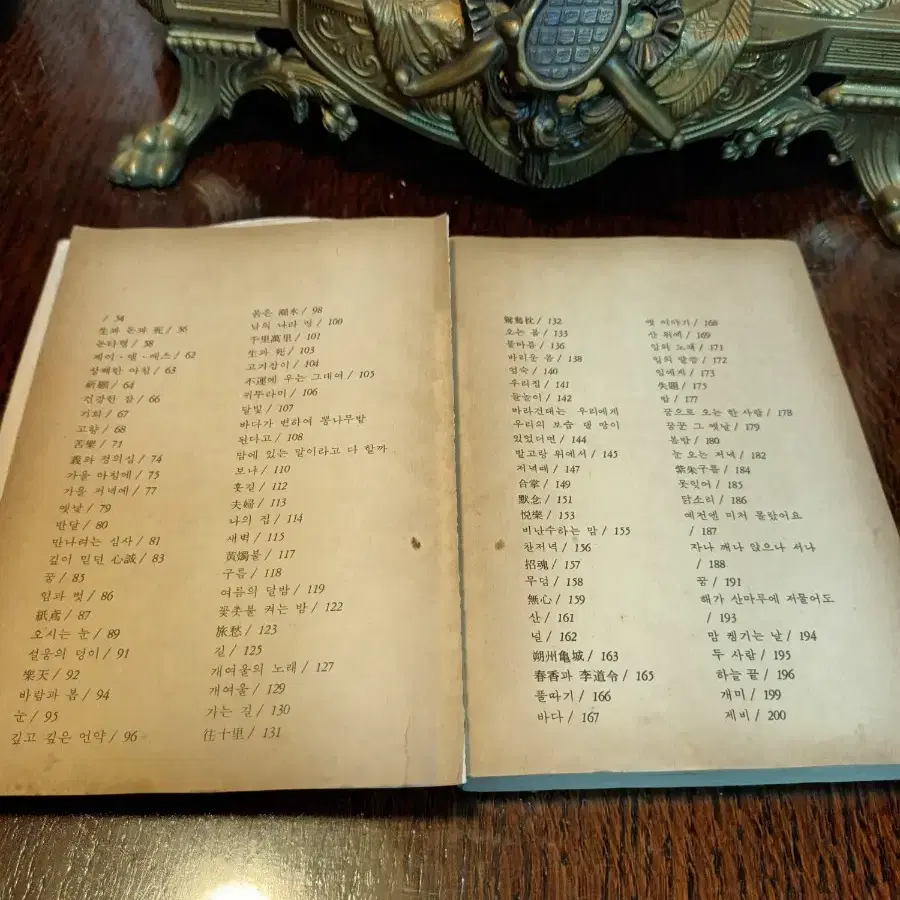 / 34
生과 돈과 死 / 36
돈타령 / 58
제이·엠·에스 / 62
상쾌한 아침 / 63
/ 64
건강한 잠 / 66
기회 / 67
고향 / 68
苦樂 / 71
義와 정의심 / 74
가을 아침에 / 75
가을 저녁에 / 77
옛날 / 79
반달 / 80
만나려는 심사 / 81
깊이 믿던 心誠 / 83
꿈 / 85
임과 벗 / 86
紙鳶 / 87
오시는 눈 / 89
설움의 덩이 / 91
樂天 / 92
바람과 봄 / 94
눈 / 95
깊고 깊은 언약 / 96
옮은 湖水 / 98
남의 나라 땅 / 100
千里萬里 / 101
生과 死 / 103
고기잡이 / 104
不運에 우는 그대여 / 105
귀뚜라미 / 106
달빛 / 107
바다가 변하여 뽕나무밭
된다고 / 108
맘에 있는 말이라고 다 할까
보냐 / 110
훗길 / 112
夫婦 / 113
나의 집 / 114
새벽 / 115
黃燭불 / 117
구름 / 118
여름의 달밤 / 119
꽃촛불 켜는 밤 / 122
旅愁 / 123
길 / 125
개여울의 노래 / 127
개여울 / 129
가는 길 / 130
往十里 / 131
鴛鴦枕 / 132
오는 봄 / 133
물마름 / 136
바리운 몸 / 138
엄숙 / 140
우리집 / 141
들놀이 / 142
바라건대는 우리에게
우리의 보습 댈 땅이
있었더면 / 144
밭고랑 위에서 / 145
저녁때 / 147
合掌 / 149
默念 / 151
悅樂 / 153
비난수하는 맘 / 155
찬저녁 / 156
招魂 / 157
무덤 / 158
無心 / 159
산 / 161
널 / 162
朔州龜城 / 163
春香과 李道令 / 165
풀따기 / 166
바다 / 167
옛 이야기 / 168
산 위에 / 169
임의 노래 / 171
임의 말씀 / 172
임에게 / 173
失題 / 175
밤 / 177
꿈으로 오는 한 사람 / 178
꿈꾼 그 옛날 / 179
봄밤 / 180
눈 오는 저녁 / 182
紫朱구름 / 184
못잊어 / 185
닭소리 / 186
예전엔 미처 몰랐어요
/ 187
자나 깨나 앉으나 서나
/ 188
꿈 / 191
해가 산마루에 저물어도
/ 193
맘 켕기는 날 / 194
두 사람 / 195
하늘 끝 / 196
개미 / 199
제비 / 200